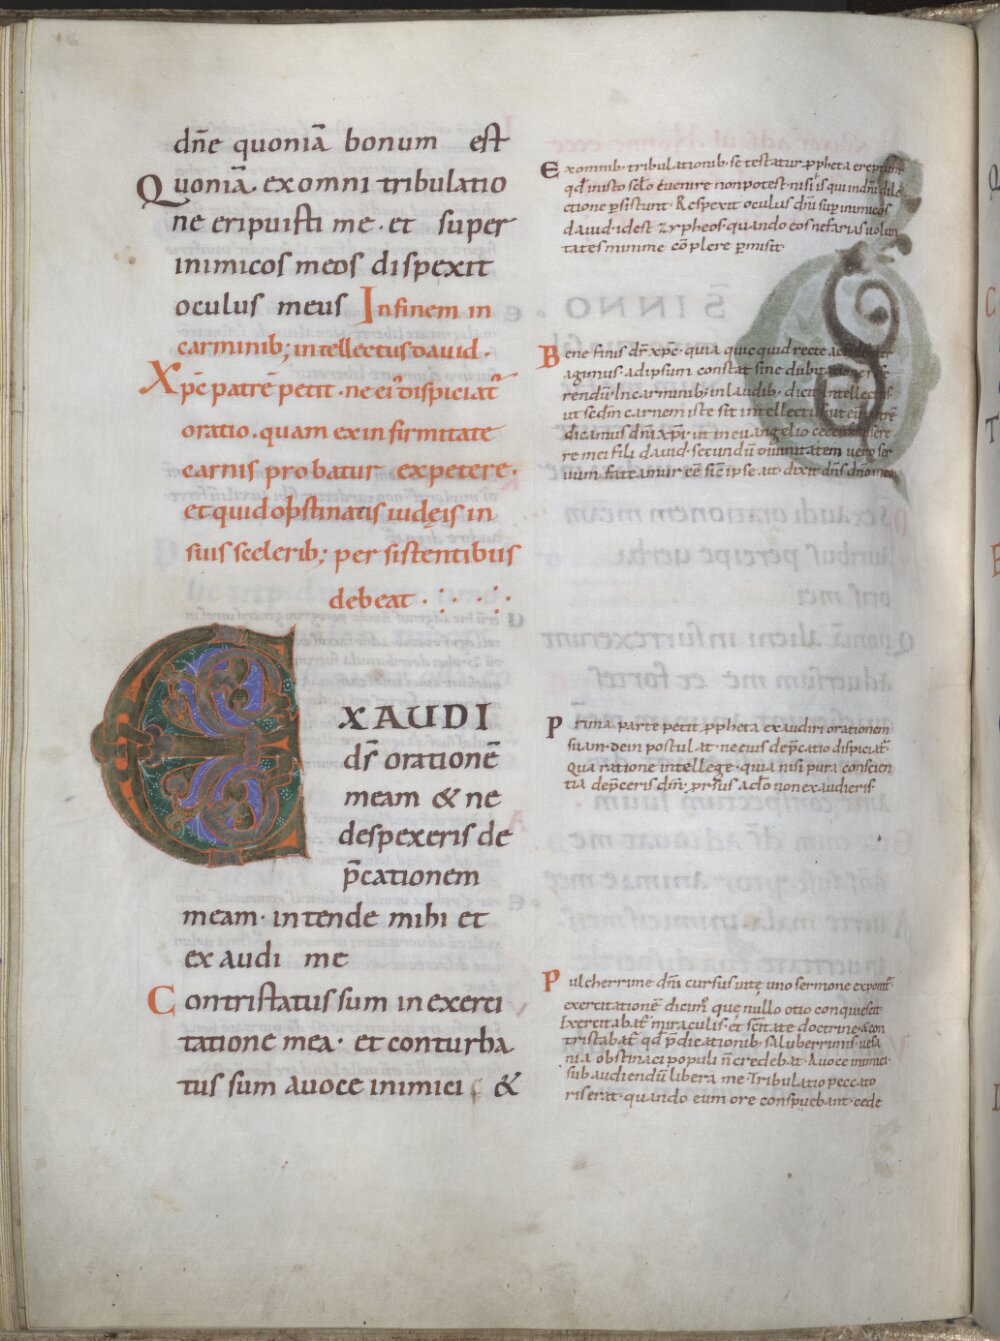 dñe quoniã bonum est
Quoniã ex omni tribulatio
ne eripuisti me · et super
inimicos meos dispexit
oculus meus In finem in
carminib; intellectus dauid ·
Xp̄c patrē petit · ne ei' dispiciat'
oratio · quam ex infirmitate
carnis probatur expetere ·
et quid obstinatis iudęis in
suis scelerib; per sistentibus
debeat ·
EXAUDI
ds̄ orationē
meam & ne
despexeris de
p̄cationem
meam · intende mihi et
exaudi me
Contristatus sum in exerci
tatione mea · et conturba
tus sum a uoce inimici &
Ex omnib· tribulationib· se testatur ꝓpheta ereptum
qđ iusto sc̄lo euenire non potest · nisi is qui in dn̄i dile
ctione ꝑsistunt · Respexit oculus dn̄i sup inimicos
dauid · id est zypheos · quando eos nefarias uolun
tates minime cōplere ꝑmisit·
Bene finis dr̄ xp̄c · quia quicquid recte
agimus · ad ipsum constat sine dubitatione refe
rendū · In carminib; in laudib; dicit Intellectus
ut scdm carnem iste sit intellectus
dicamus dn̄i xp̄i · ut in euangelio
re mei fili dauid · secundū diuinitatem uero ser
uum fateamur eē sic̄ ipse ait dixit dn̄s dn̄o meo
Prima parte petit ꝓpheta exaudiri orationem
suam · dein postulat · ne eius dep̄catio dispiciat'
Qua ratione intellege · quia nisi pura conscien
tia dep̄ceris dm̄ · ꝓrsus a cłō non exaudieris
Pulcherrime dn̄i cursus uitę uno sermone exponit'
exercitationē dicim' quę nullo otio conquiescit
Exercitabat' miraculis · et sc̄itate doctrine · & con
tristabat' qđ p̄dicationib· saluberrimis uesa
nia obstinaci populi n̄ credebat · A uoce inimici
subaudiendū libera me · Tribulatio peccato
ris erat · quando eum ore conspuebant · cede